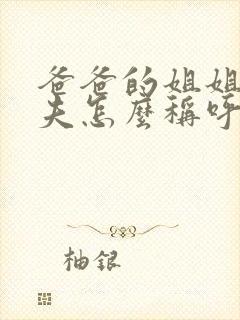 爸爸的姐姐
夫怎麼稱呼
柚銀